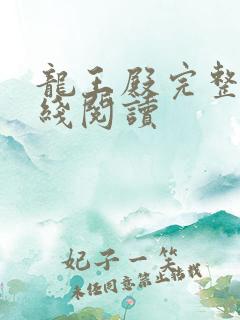 龍王殿完整
綫閱讀
妃子一笑
未经同意禁止转载